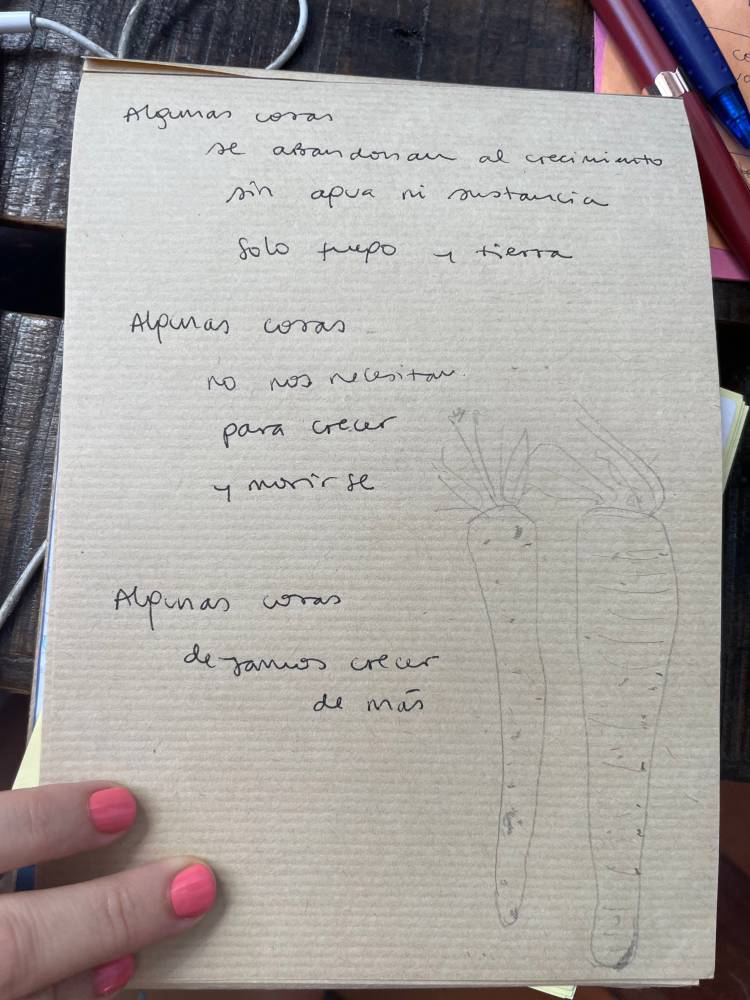 Algunas cosas
se abandonan al crecimiento
sin agua ni sustancia
Solo fuego y tierra
Algunas cosas
no nos necesitan
para crecer
y morirse
Algunas cosas
dejamos crecer
de más